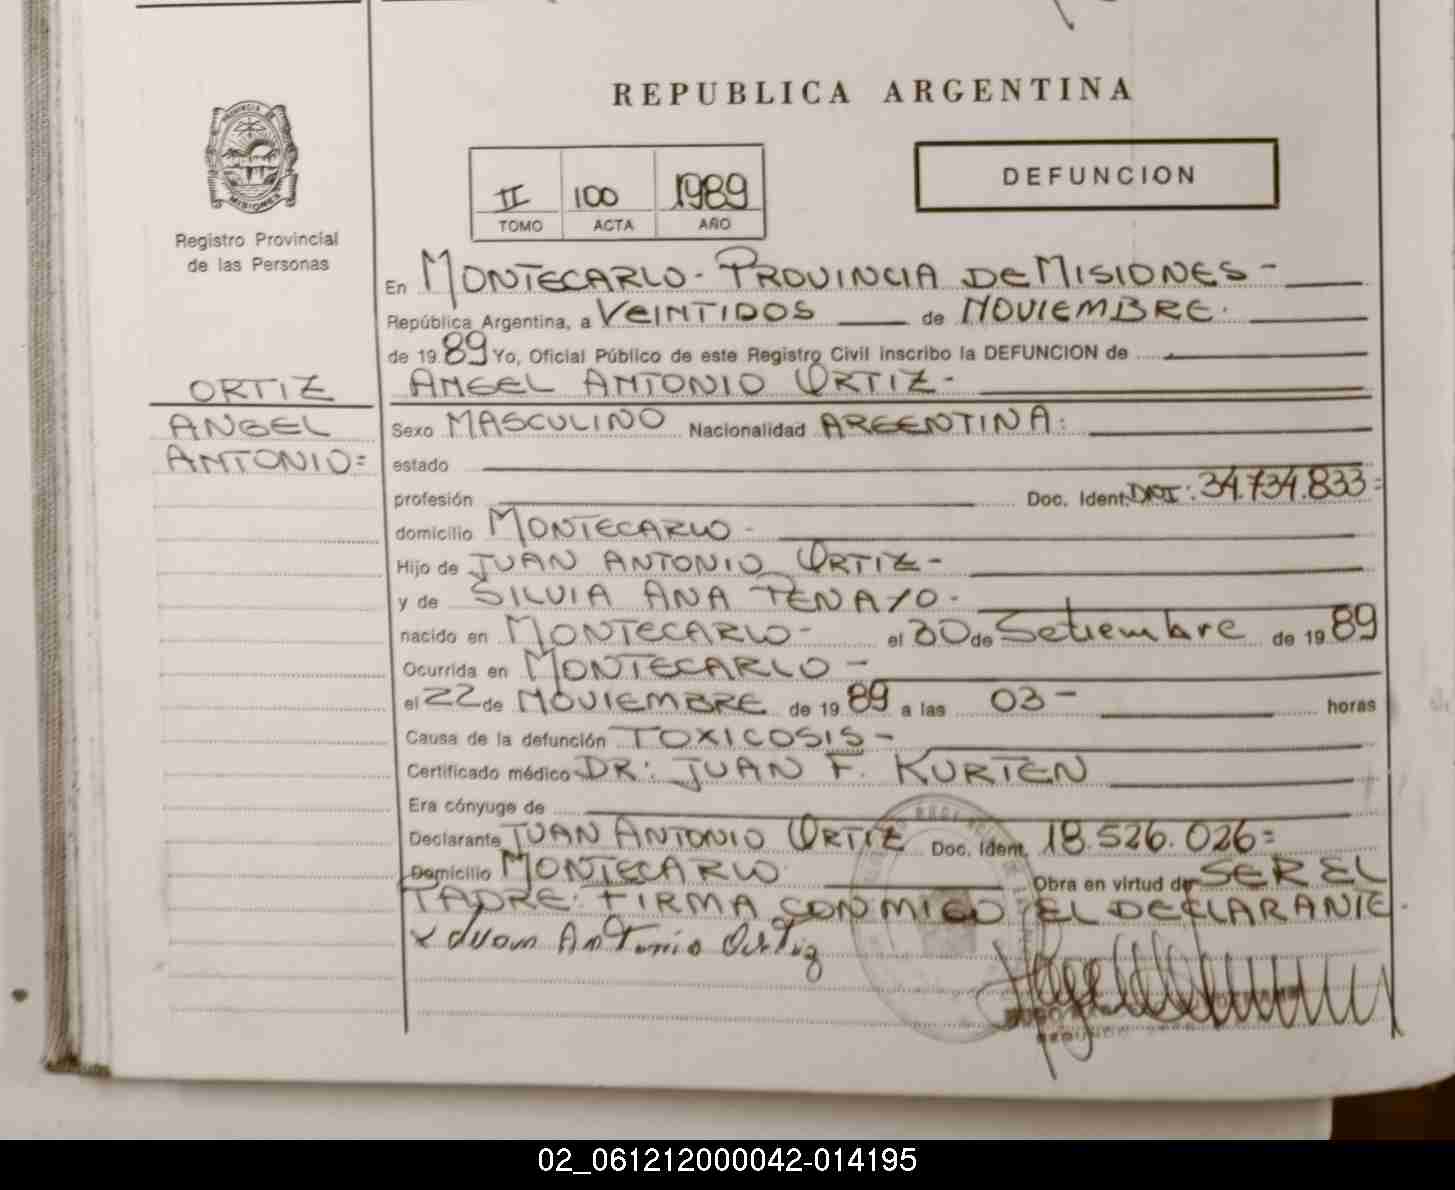 REPUBLICA ARGENTINA
PROVINCIA DE
MISIONES
Registro Provincial
de las Personas
II 100 1989
TOMO ACTA AÑO
DEFUNCION
En MONTECARLO - PROVINCIA DE MISIONES -
República Argentina, a VEINTIDOS de NOVIEMBRE.
de 1989 Yo, Oficial Público de este Registro Civil inscribo la DEFUNCION de
ORTIZ
ANGEL
ANTONIO=
ANGEL ANTONIO ORTIZ-
Sexo MASCULINO Nacionalidad ARGENTINA:
estado
profesión Doc. Ident. DNI: 34.734.833=
domicilio MONTECARLO-
Hijo de JUAN ANTONIO ORTIZ-
y de SILVIA ANA PENAYO-
nacido en MONTECARLO- el 30 de Setiembre de 1989
Ocurrida en MONTECARLO-
el 22 de NOVIEMBRE de 1989 a las 03- horas
Causa de la defunción TOXICOSIS-
Certificado médico DR: JUAN F. KURTEN
Era cónyuge de
Declarante JUAN ANTONIO ORTIZ Doc. Ident. 18.526.026=
Domicilio MONTECARLO Obra en virtud de SER EL
PADRE: FIRMA CONMIGO EL DECLARANTE-
x Juan Antonio Ortiz
02_061212000042-014195